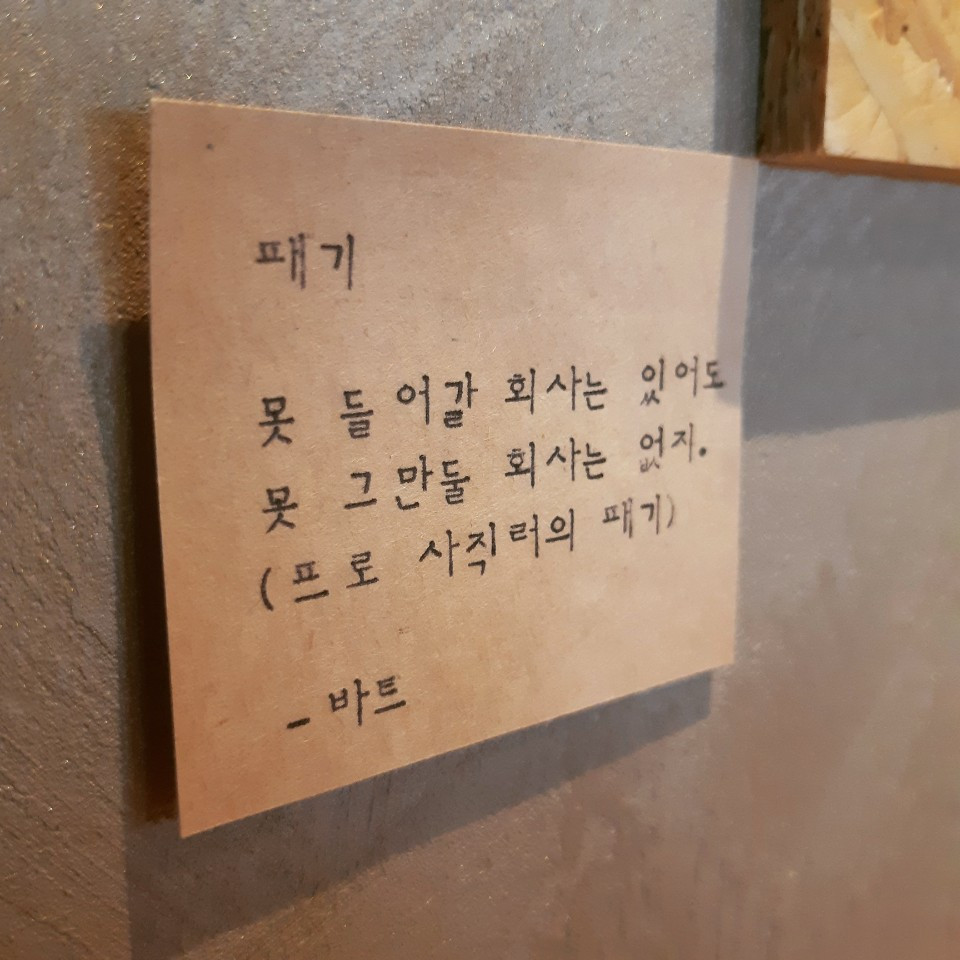 패기
못 들어갈 회사는 있어도
못 그만둘 회사는 없지.
(프로 사직러의 패기)
- 바트